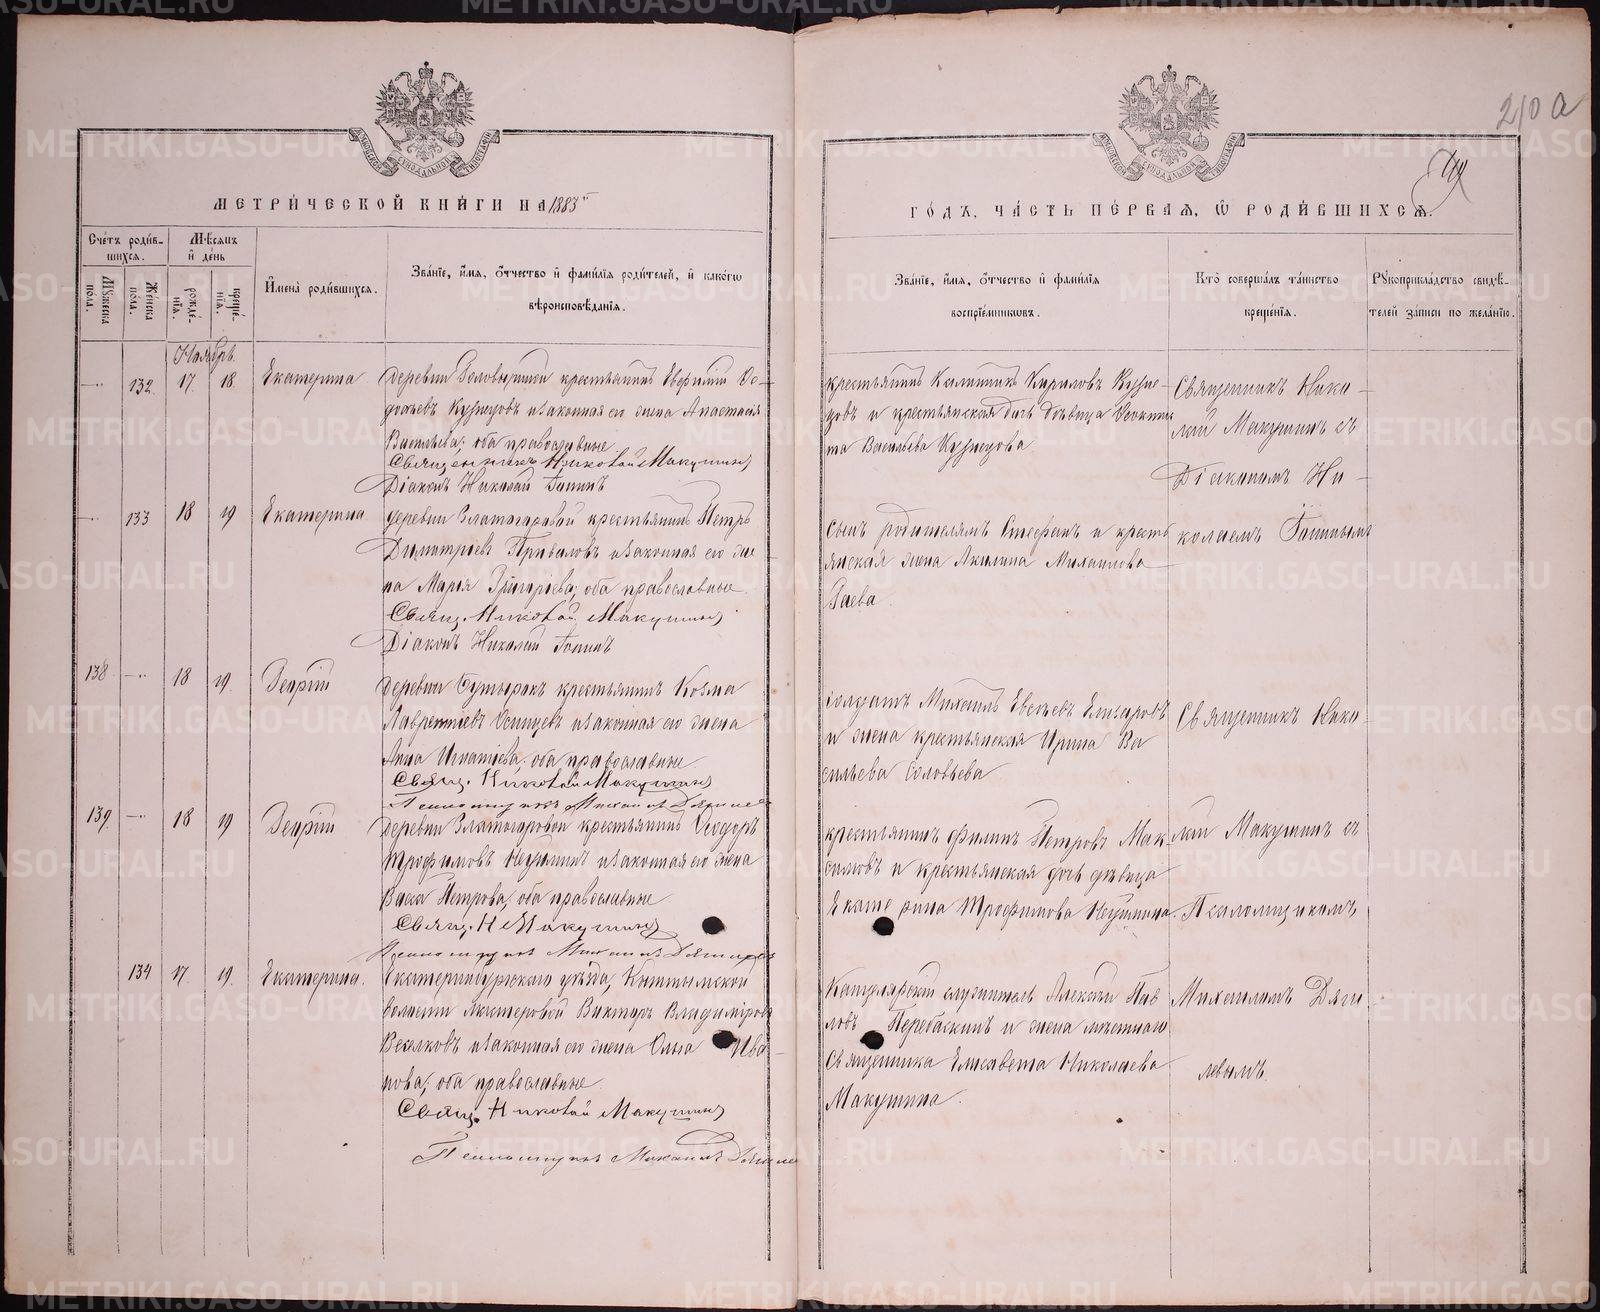 210 а
МЕТРИ́ЧЕСКОЙ КНИ́ГИ НА 1883й
ГО́ДЪ, ЧА́СТЬ ПЕ́РВАЯ, Ѽ РОДИ́ВШИХСЯ.
Сче́тъ роди́в-
шихся.
Мꙋ́жеска по́ла.
Же́нска по́ла.
Мѣ́сяцъ
и҆ де́нь
рожде́-
нїя.
креще́-
нїя.
И҆мена̀ роди́вшихся.
Зва́нїе, и҆́мя, ѻ҆́тчество и҆ фами́лїя роди́телей, и҆ како́гѡ
вѣроисповѣ́данїя.
Зва́нїе, и҆́мя, ѻ҆́тчество и҆ фами́лїя
воспрїе́мниковъ.
Кто̀ соверша́лъ та́инство
креще́нїя.
Рꙋкоприкла́дство свидѣ́-
телей за́писи по жела́нїю.
Ноябрь
132 17 18 Екатерина
крестьянинъ Евфимій Ѳе-
дотьевъ Кузнецовъ и законная его жена Анастасія
Васильева; оба православные
Священникъ Николай Макушинъ
Діаконъ Николай
крестьянинъ Калиникъ Кириловъ Кузне-
цовъ и крестьянская дочь дѣвица
Васильева Кузнецова
Священникъ Нико-
лай Макушинъ съ
Діакономъ Ни-
колаемъ
133 18 19 Екатерина
деревни Златогоровой крестьянинъ Петръ
Димитріевъ Приваловъ и законная его же-
на Марья Григорьева; оба православные
Свящ. Николай Макушинъ
Діаконъ Николай
Сынъ родителямъ Стефанъ и кресть
янская жена Акилина Михаилова
Раева
138 18 19 Георгій
деревни крестьянинъ Козма
Лаврентіевъ и законная его жена
Анна Игнатіева; оба православные
Свящ. Николай Макушинъ
Псаломщикъ Михаилъ Дягилев
солдатъ Михаилъ Евсѣевъ Елизаровъ
и жена крестьянская Ирина Ва
сильева Соловьева
Священникъ Нико-
лай Макушинъ съ
Псаломщикомъ
139 18 19 Георгій
деревни Златогоровой крестьянинъ Ѳеодоръ
Трофимовъ и законная его жена
Васса Петрова; оба православные
Свящ. Н Макушинъ
Псаломщикъ Михаилъ Дягилевъ
крестьянинъ Филипъ Петровъ Мак-
симовъ и крестьянская дочь дѣвица
Екатерина Трофимова
134 17 19 Екатерина
Екатеринбургскаго уѣзда, Кыштымской
волости мастеровой Викторъ Владиміровъ
и законная его жена Ольга Ива-
нова; оба православные
Свящ. Николай Макушинъ
Псаломщикъ Михаилъ Дягилев
Канцелярскій служитель Алексѣй Пав
ловъ и жена мѣстнаго
священника Елисавета Николаева
Макушина
Михаиломъ Дяги-
левымъ
METRIKI.GASO-URAL.RU